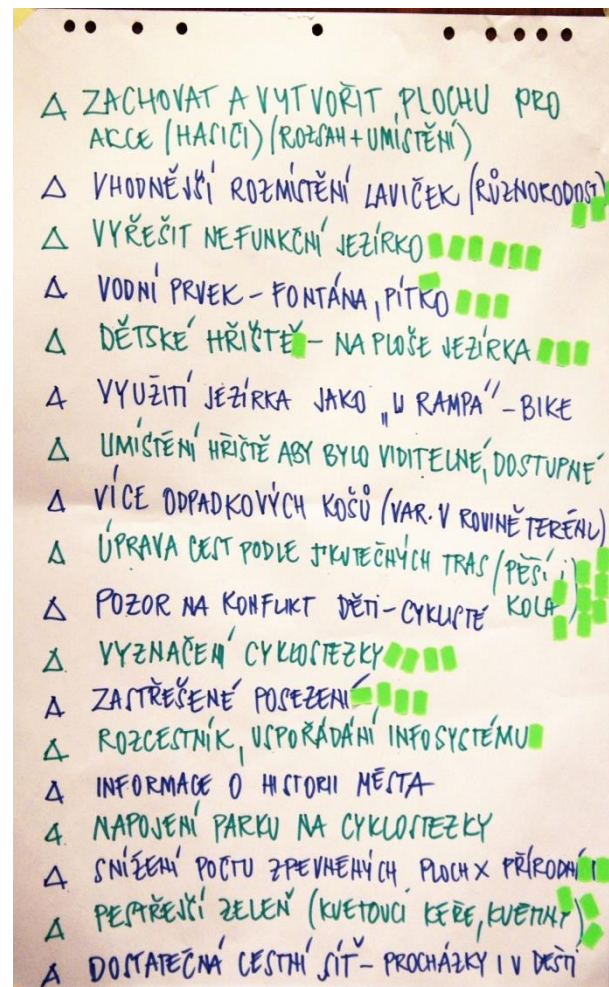 △ ZACHOVAT A VYTVOŘIT PLOCHU PRO
AKCE (HASIČI) (ROZSAH + UMÍSTĚNÍ)
△ VHODNĚJŠÍ ROZMÍSTĚNÍ LAVIČEK (RŮZNORODOST)
△ VYŘEŠIT NEFUNKČNÍ JEZÍRKO
△ VODNÍ PRVEK – FONTÁNA, PÍTKO
△ DĚTSKÉ HŘIŠTĚ – NA PLOŠE JEZÍRKA
△ VYUŽITÍ JEZÍRKA JAKO „U RAMPA“ – BIKE
△ UMÍSTĚNÍ HŘIŠTĚ ABY BYLO VIDITELNÉ, DOSTUPNÉ
△ VÍCE ODPADKOVÝCH KOŠŮ (VAR. V ROVINĚ TERÉNU)
△ ÚPRAVA CEST PODLE SKUTEČNÝCH TRAS (PĚŠÍ I
KOLA)
△ POZOR NA KONFLIKT DĚTI – CYKLISTÉ
△ VYZNAČENÍ CYKLOSTEZKY
△ ZASTŘEŠENÉ POSEZENÍ
△ ROZCESTNÍK, USPOŘÁDÁNÍ INFOSYSTÉMU
△ INFORMACE O HISTORII MĚSTA
△ NAPOJENÍ PARKU NA CYKLOSTEZKY
△ SNÍŽENÍ POČTU ZPEVNĚNÝCH PLOCH X PŘÍRODNÍ
△ PESTŘEJŠÍ ZELEŇ (KVETOUCÍ KEŘE, KVĚTINY)
△ DOSTATEČNÁ CESTNÍ SÍŤ – PROCHÁZKY I V DEŠTI